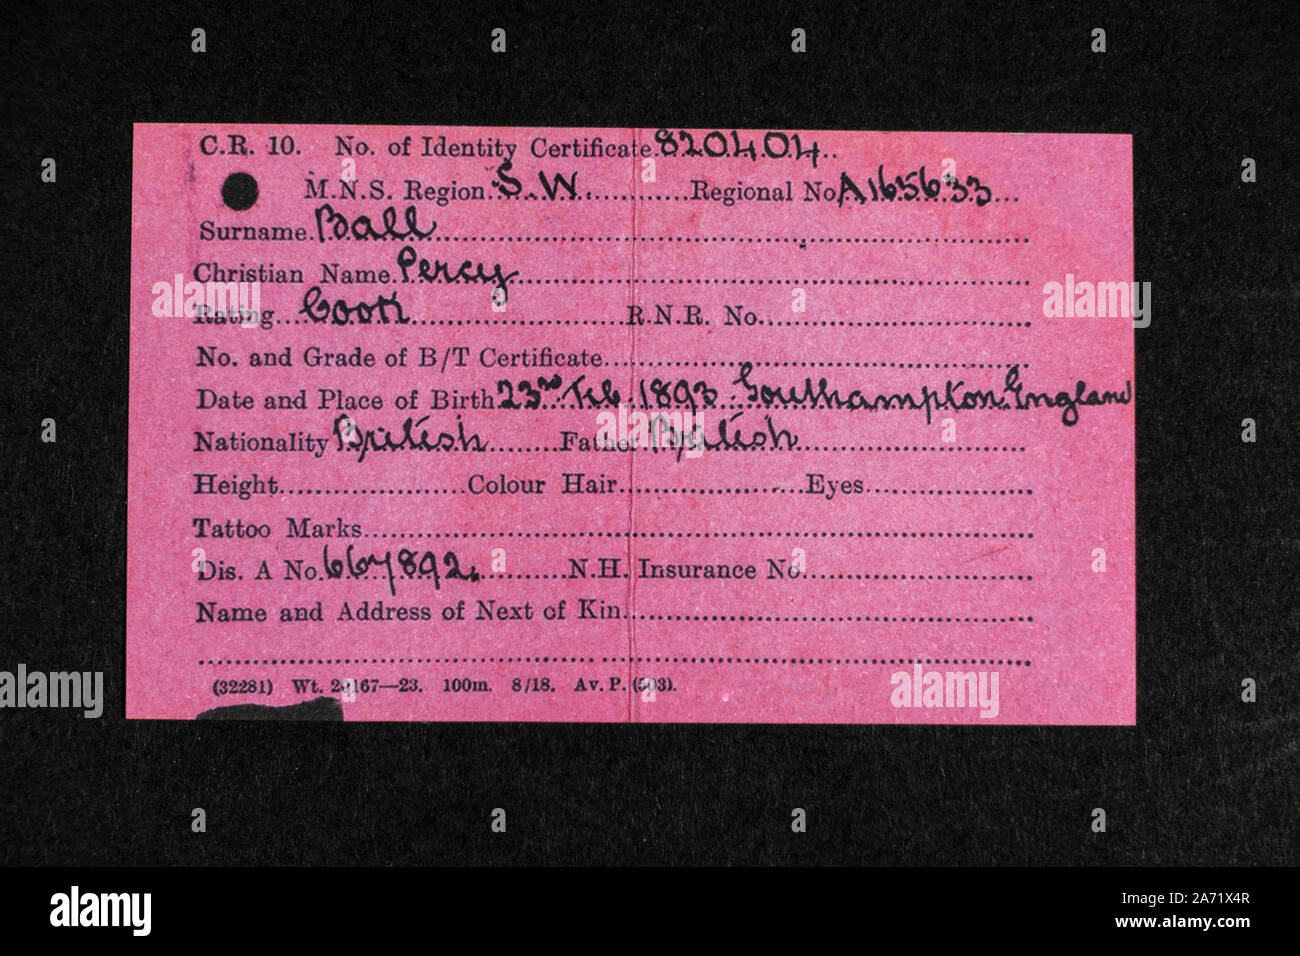 C.R. 10. No. of Identity Certificate 820404
M.N.S. Region S.W. Regional No A165633
Surname Ball
Christian Name Percy
Rating Cook R.N.R. No.
No. and Grade of B/T Certificate
Date and Place of Birth 23rd Feb 1893. Southampton England
Nationality British Father British
Height Colour Hair Eyes
Tattoo Marks
Dis. A No. 667892. N.H. Insurance No
Name and Address of Next of Kin
(32281) Wt. 29167—23. 100m. 8/18. Av. P. (503).
alamy
Image ID: 2A71X4R
www.alamy.com